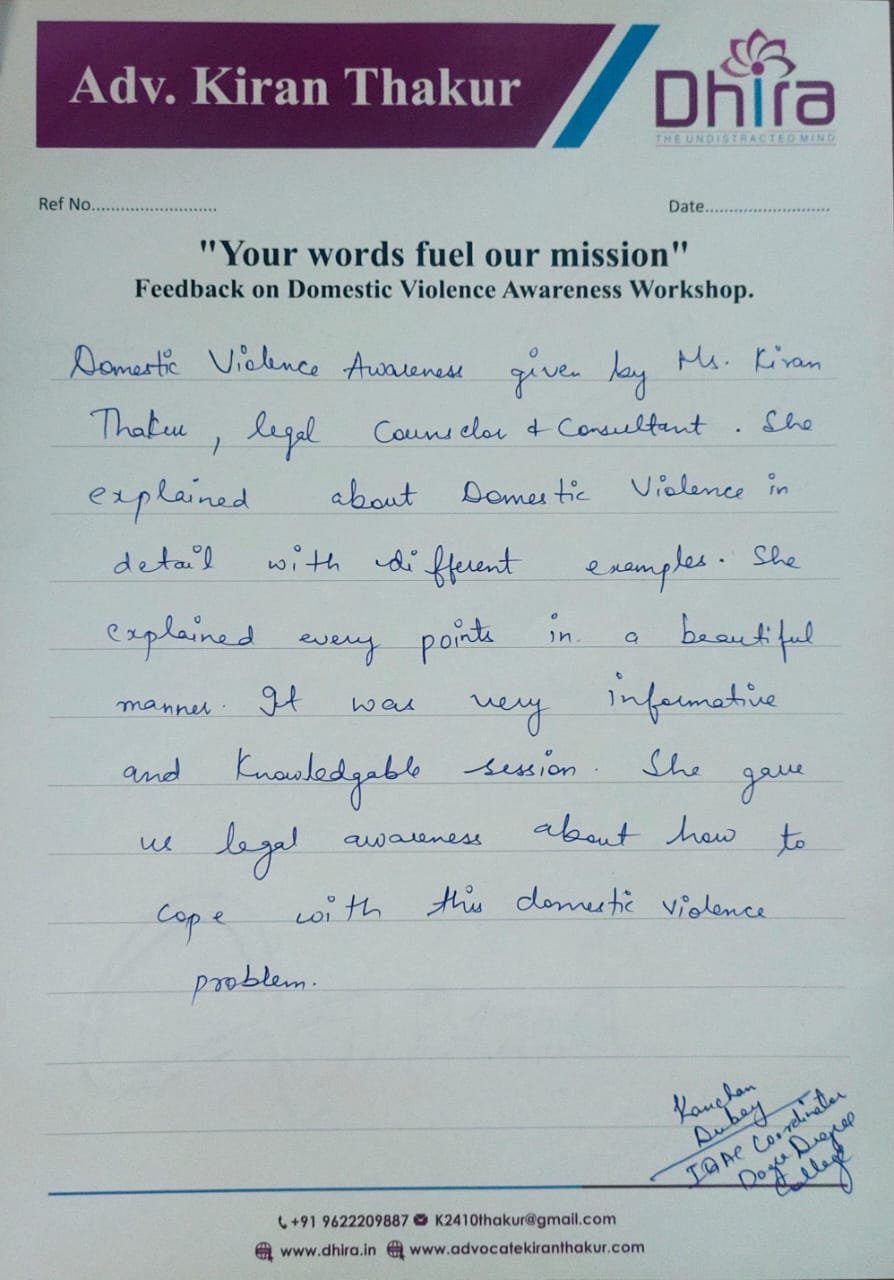 Adv. Kiran Thakur
Dhira
THE UNDISTRACTED MIND
Ref No..........................
Date..........................
"Your words fuel our mission"
Feedback on Domestic Violence Awareness Workshop.
Domestic Violence Awareness given by Ms. Kiran
Thakur, legal Counselor & Consultant. She
explained about Domestic Violence in
detail with different examples. She
explained every points in a beautiful
manner. It was very informative
and Knowledgable session. She gave
us legal awareness about how to
cope with this domestic violence
problem.
Kanchan
Dubey
IQAC Coordinator
Dogra Degree
College
+91 9622209887 K2410thakur@gmail.com
www.dhira.in www.advocatekiranthakur.com